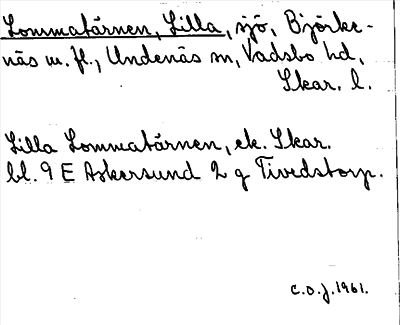 Lommatärnen, Lilla, sjö, Björke-
näs m. fl., Undenäs sn, Vadsbo hd,
Skar. l.
Lilla Lommatärnen, ek. Skar.
bl. 9 E Askersund 2 g Tivedstorp.
C.O.J. 1961.